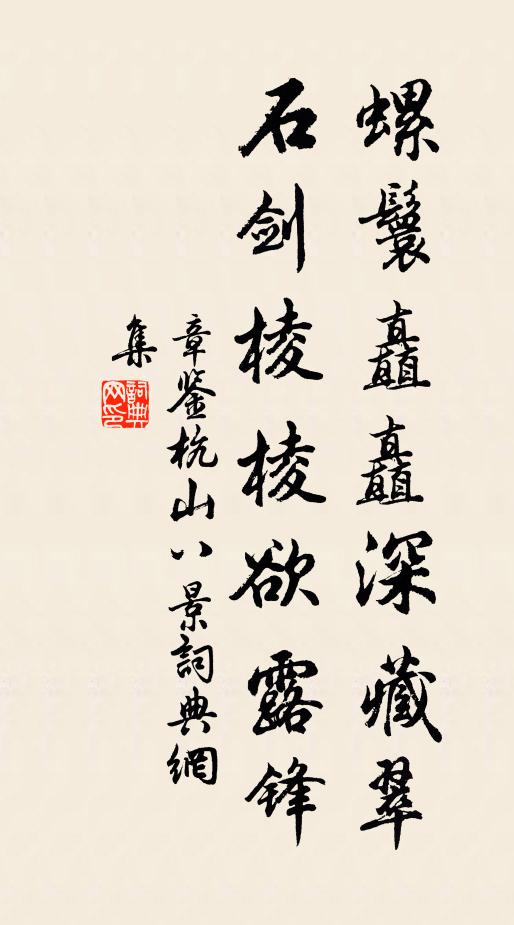 螺鬟矗矗深藏翠
石剑棱棱欲露锋
章鉴杭山八景詞典網
集
詞典
网印